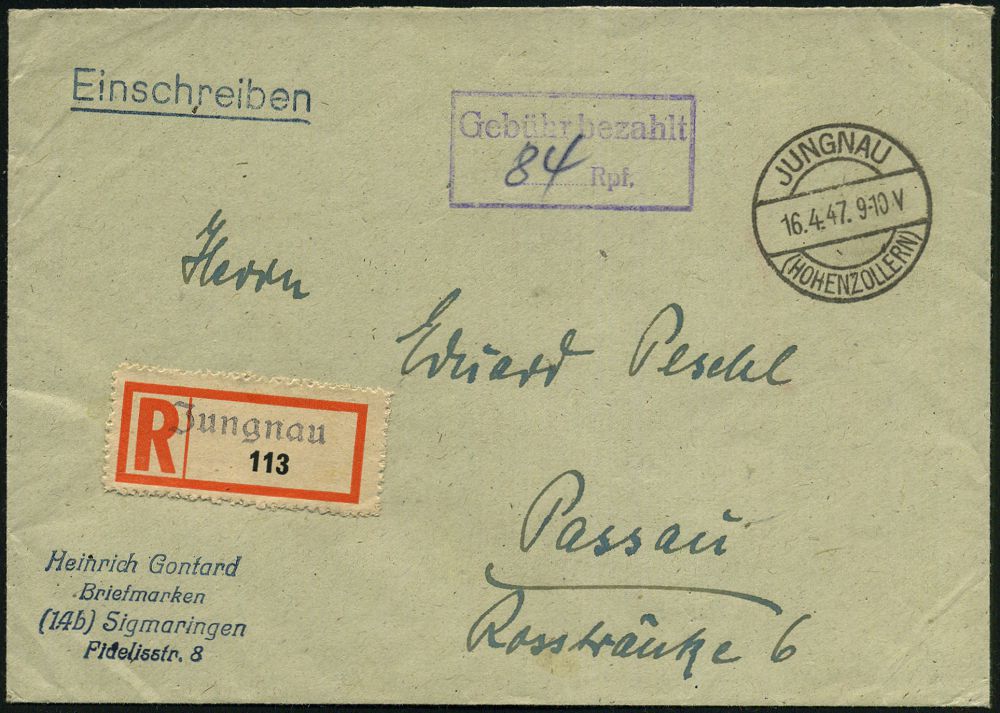 Einschreiben
Gebühr bezahlt
84 Rpf.
JUNGNAU
16.4.47. 9-10 V
(HOHENZOLLERN)
Herrn
Eduard Peschl
R Jungnau
113
Passau
Rosstränke 6
Heinrich Gontard
Briefmarken
(14b) Sigmaringen
Fidelisstr. 8